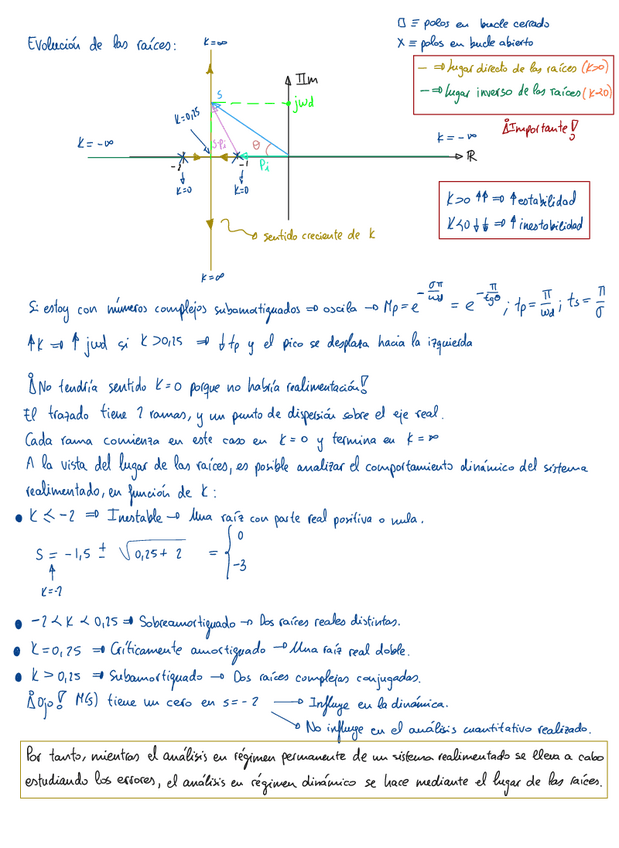 □ ≡ polos en bucle cerrado
x ≡ polos en bucle abierto
Evolución de las raíces:
K=∞
— ⇒ lugar directo de las raíces (K>0)
— ⇒ lugar inverso de las raíces (K<0)
¡Importante!
IIm
s
jwd
K=0,25
s-pi
θ
K=-∞
K=-∞
ℝ
-2
-1
pi
K=0
K=0
K>0 ↑↑ ⇒ ↑ estabilidad
K<0 ↓↓ ⇒ ↑ inestabilidad
sentido creciente de K
K=∞
Si estoy con números complejos subamortiguados ⇒ oscila → Mp = e^(-σπ/wd) = e^(-π/tgθ) ; tp = π/wd ; ts = π/σ
↑K ⇒ ↑ jwd si K>0,25 ⇒ ↓tp y el pico se desplaza hacia la izquierda
¡No tendría sentido K=0 porque no habría realimentación!
El trazado tiene 2 ramas, y un punto de dispersión sobre el eje real.
Cada rama comienza en este caso en K=0 y termina en K=∞
A la vista del lugar de las raíces, es posible analizar el comportamiento dinámico del sistema
realimentado, en función de K:
• K ≤ -2 ⇒ Inestable → Una raíz con parte real positiva o nula.
s = -1,5 ± √0,25+2 = { 0
-3
K=-2
• -2 < K < 0,25 ⇒ Sobreamortiguado → Dos raíces reales distintas.
• K=0,25 ⇒ Críticamente amortiguado → Una raíz real doble.
• K > 0,25 ⇒ Subamortiguado → Dos raíces complejas conjugadas.
¡Ojo! M(s) tiene un cero en s=-2 → Influye en la dinámica.
→ No influye en el análisis cuantitativo realizado.
Por tanto, mientras el análisis en régimen permanente de un sistema realimentado se lleva a cabo
estudiando los errores, el análisis en régimen dinámico se hace mediante el lugar de las raíces.